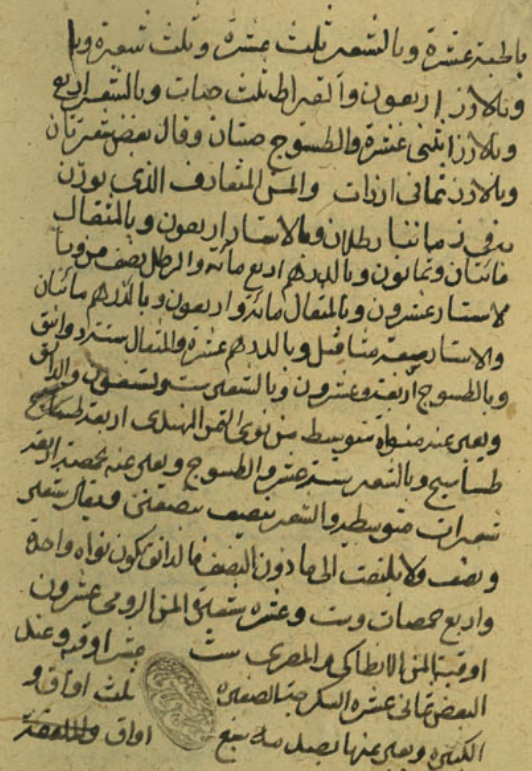 بالحبة عشرة وبالشعير ثلث عشرة وثلث شعيرة وبا
وبالارز اربعون والقيراط ثلث حبات وبالشعير اربع
وبالارز اثنى عشرة والطسوج حبتان وقال بعض شعيرتان
وبالارز ثمانى ارزات والمن المتعارف الذى يوزن
به فى زماننا رطلان وبالاستار اربعون وبالمثقال
مائتان وثمانون وبالدرهم اربع مائة والرطل نصف من وبا
لاستار عشرون وبالمثقال مائة واربعون وبالدرهم مائتان
والاستار مثاقيل وبالدرهم عشرة والمثقال ستة دوانق
وبالطسوج اربعة وعشرون وبالشعير ست وتسعون والدانق
ويعبر عنه بنواة متوسط من نوى التمر الهندى اربعة
طساسيج وبالشعير ستة عشر والطسوج ويعبر عنه بحمصة اربعة
شعيرات متوسطة والشعير نصف
ونصف ولا يلتفت الى ما دون النصف فالدانق يكون نواة واحدة
واربع حمصات وست وعشرة شعيرة المن الرومى عشرون
اوقية المن الانطاكى والمصرى ست عشر اوقية وعند
البعض ثمانى عشرة السكرجة الصغيرة ثلث اواق و
الكبيرة ويعبر عنها تسع اواق